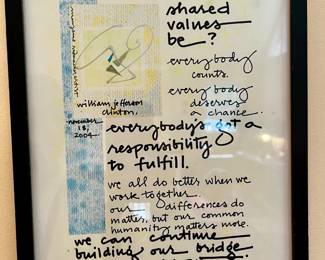 shared
values
be?
everybody
counts.
everybody
deserves
a chance.
william jefferson
clinton,
november
18,
2004
everybody's got a
responsibility
to fulfill.
we all do better when we
work together.
our differences do
matter, but our common
humanity matters more.
we can continue
building our bridge